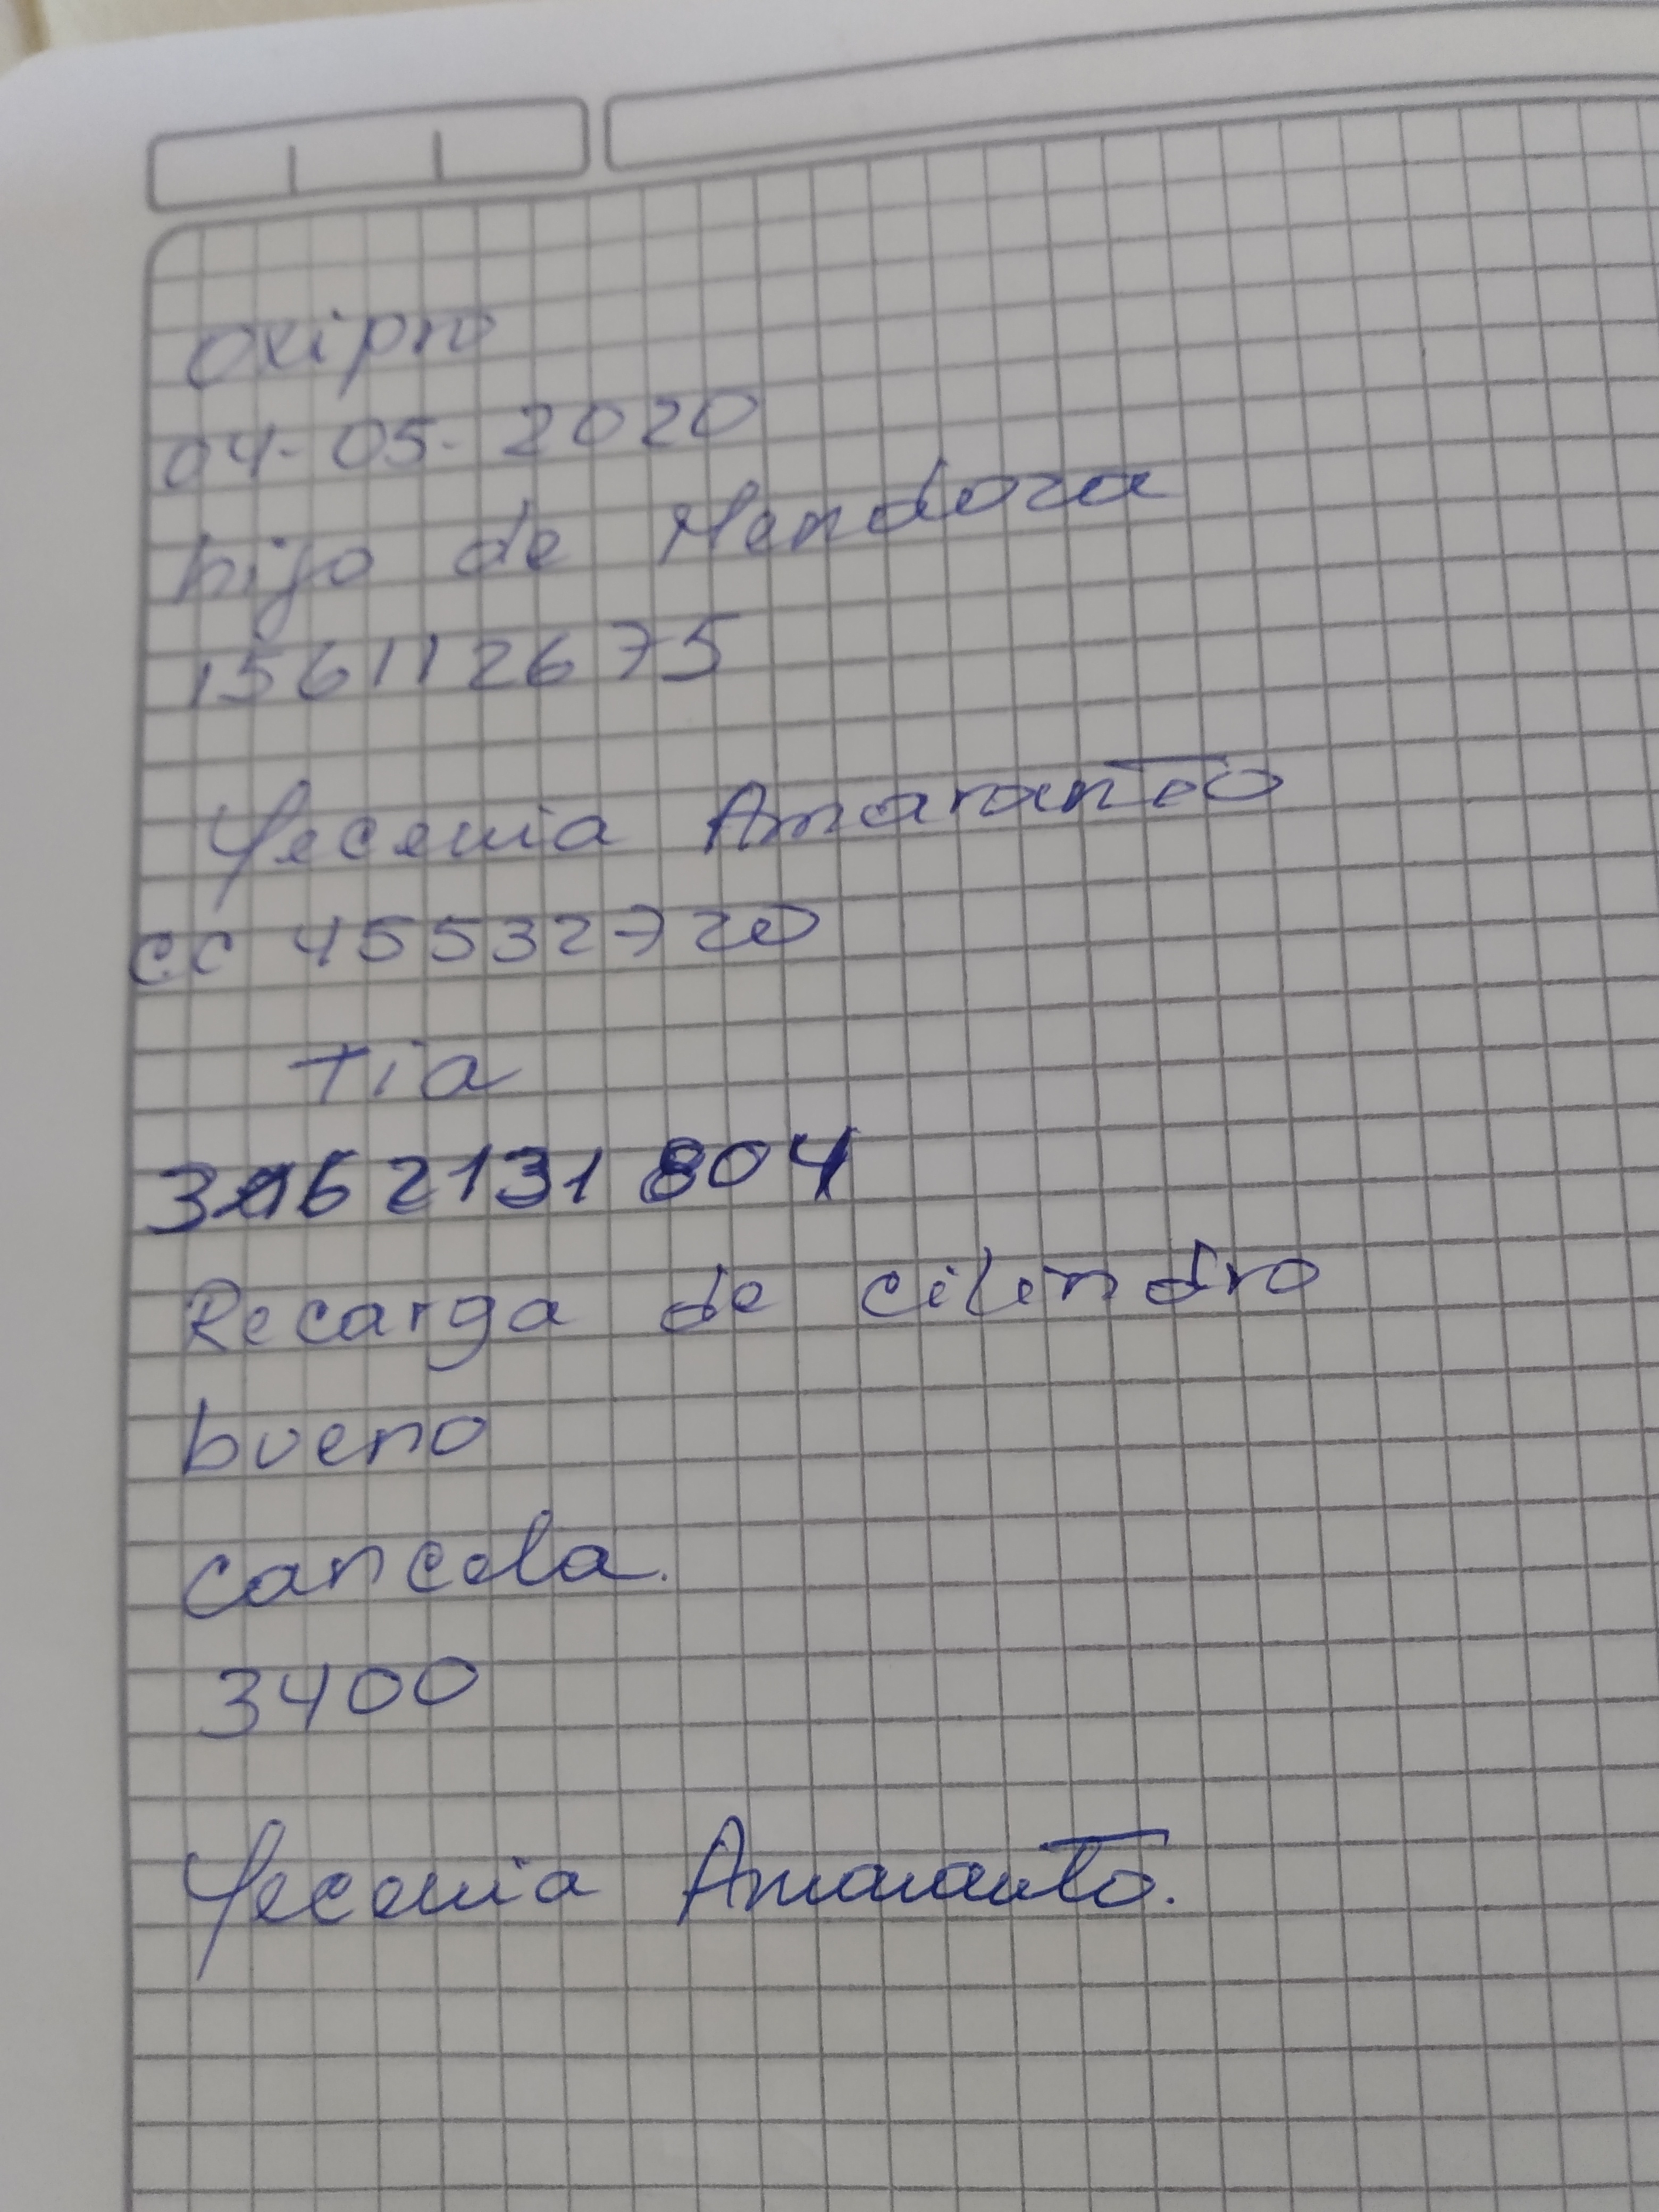 oxipro
04-05-2020
hijo de Mendoza
156112675
Yecenia Amaranto
cc 45532720
Tia
3162131804
Recarga de cilindro
bueno
cancela.
3400
Yecenia Amaranto.